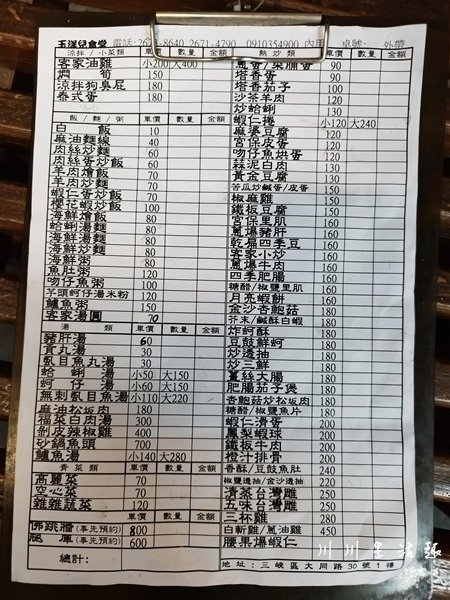 玉漾兒食堂 電話:26 -8640 2671-4790 0910354900 內用 桌號: 外帶
涼拌/小菜類 車價 數量 金額
客家油雞 小200 大400
燜筍 150
涼拌狗臭屁 180
泰式蛋 150
飯/麵/粥 車價 數量 金額
白飯 10
麻油麵線 40
肉絲炒麵 60
肉絲蛋炒飯 60
羊肉燴飯 70
羊肉炒麵 70
蝦仁蛋炒飯 70
櫻花蝦炒飯 100
海鮮燴飯 80
蛤蜊湯麵 80
海鮮湯麵 80
海鮮炒麵 80
海鮮粥 80
魚肚粥 120
吻仔魚粥 100
芋頭蚵仔湯米粉 120
鱸魚粥 150
客家湯圓 70
湯類 車價 數量 金額
豬肝湯 60
貢丸湯 30
虱目魚丸湯 30
蛤蜊湯 小50 大150
蚵仔湯 小60 大150
無刺虱目魚湯 小110 大220
麻油松坂肉 180
福菜白肉湯 300
剝皮辣椒雞 400
砂鍋魚頭 700
鱸魚湯 小140 大280
青菜類 車價 數量 金額
高麗菜 70
空心菜 70
雜雜蔬菜 120
佛跳牆(事先預約) 800
腿庫(事先預約) 600
總計:
熱炒類 車價 數量 金額
蔥蛋/菜脯蛋 90
塔香蛋 90
塔香茄子 100
沙茶羊肉 120
炒蛤蜊 130
蝦仁捲 小120 大240
麻婆豆腐 120
宮保皮蛋 120
吻仔魚烘蛋 120
蒜泥白肉 130
黃金豆腐 130
苦瓜炒鹹蛋/皮蛋 150
椒麻雞 150
鐵板豆腐 150
宮保里肌 160
蔥爆豬肝 160
乾扁四季豆 160
客家小炒 160
蔥爆牛肉 160
四季肥腸 160
糖醋/椒鹽里肌 160
月亮蝦餅 160
金沙杏鮑菇 180
芥末/鹹酥白蝦 180
炸蚵酥 180
豆鼓鮮蚵 180
炒透抽 180
炒三鮮 180
薑絲大腸 180
肥腸茄子煲 180
杏鮑菇炒松坂肉 180
糖醋/椒鹽魚片 180
蝦仁滑蛋 200
鳳梨蝦球 200
鐵板牛肉 200
橙汁排骨 200
香酥/豆鼓魚肚 240
椒鹽透抽/金沙透抽 220
清蒸台灣鯛 250
五味台灣鯛 250
三杯雞 280
白斬雞/蔥油雞 450
腰果爆蝦仁
地址:三峽區大同路30號1樓
川川生活趣